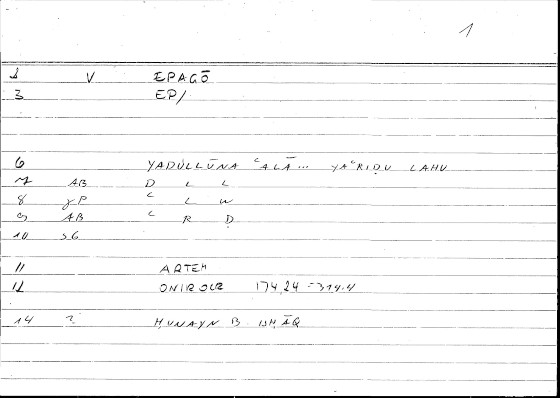 1
1 V EPAGŌ
3 EP/
6 YADULLŪNA ʿALĀ... YAʿRIḌU LAHU
7 AB D L L
8 γP ʿ L W
9 AB ʿ R Ḍ
10 SG
11 ARTEM
12 ONIROCR 174,24 = 314.4
14 2 ḤUNAYN B. ISḤĀQ